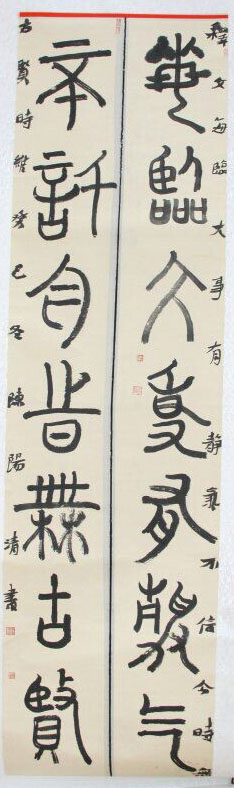 每臨大事有靜氣
不信今時無古賢
釋文每臨大事有靜氣不信今時無
古賢時維癸巳冬陳陽清書